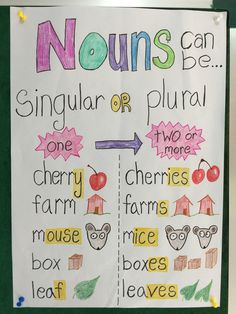 Nouns can be...
Singular OR plural
one two or more
cherry cherries
farm farms
mouse mice
box boxes
leaf leaves